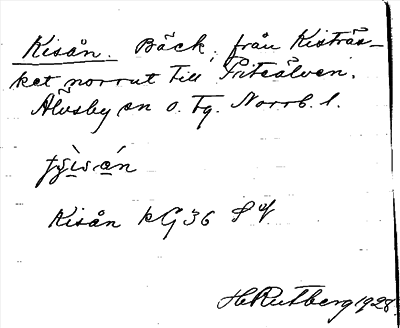 Kisån. Bäck, från Kisträs-
ket norrut till Piteälven.
Älvsby sn o. tg. Norrb. l.
Kisån kG 36 S
H Rutberg 1928.